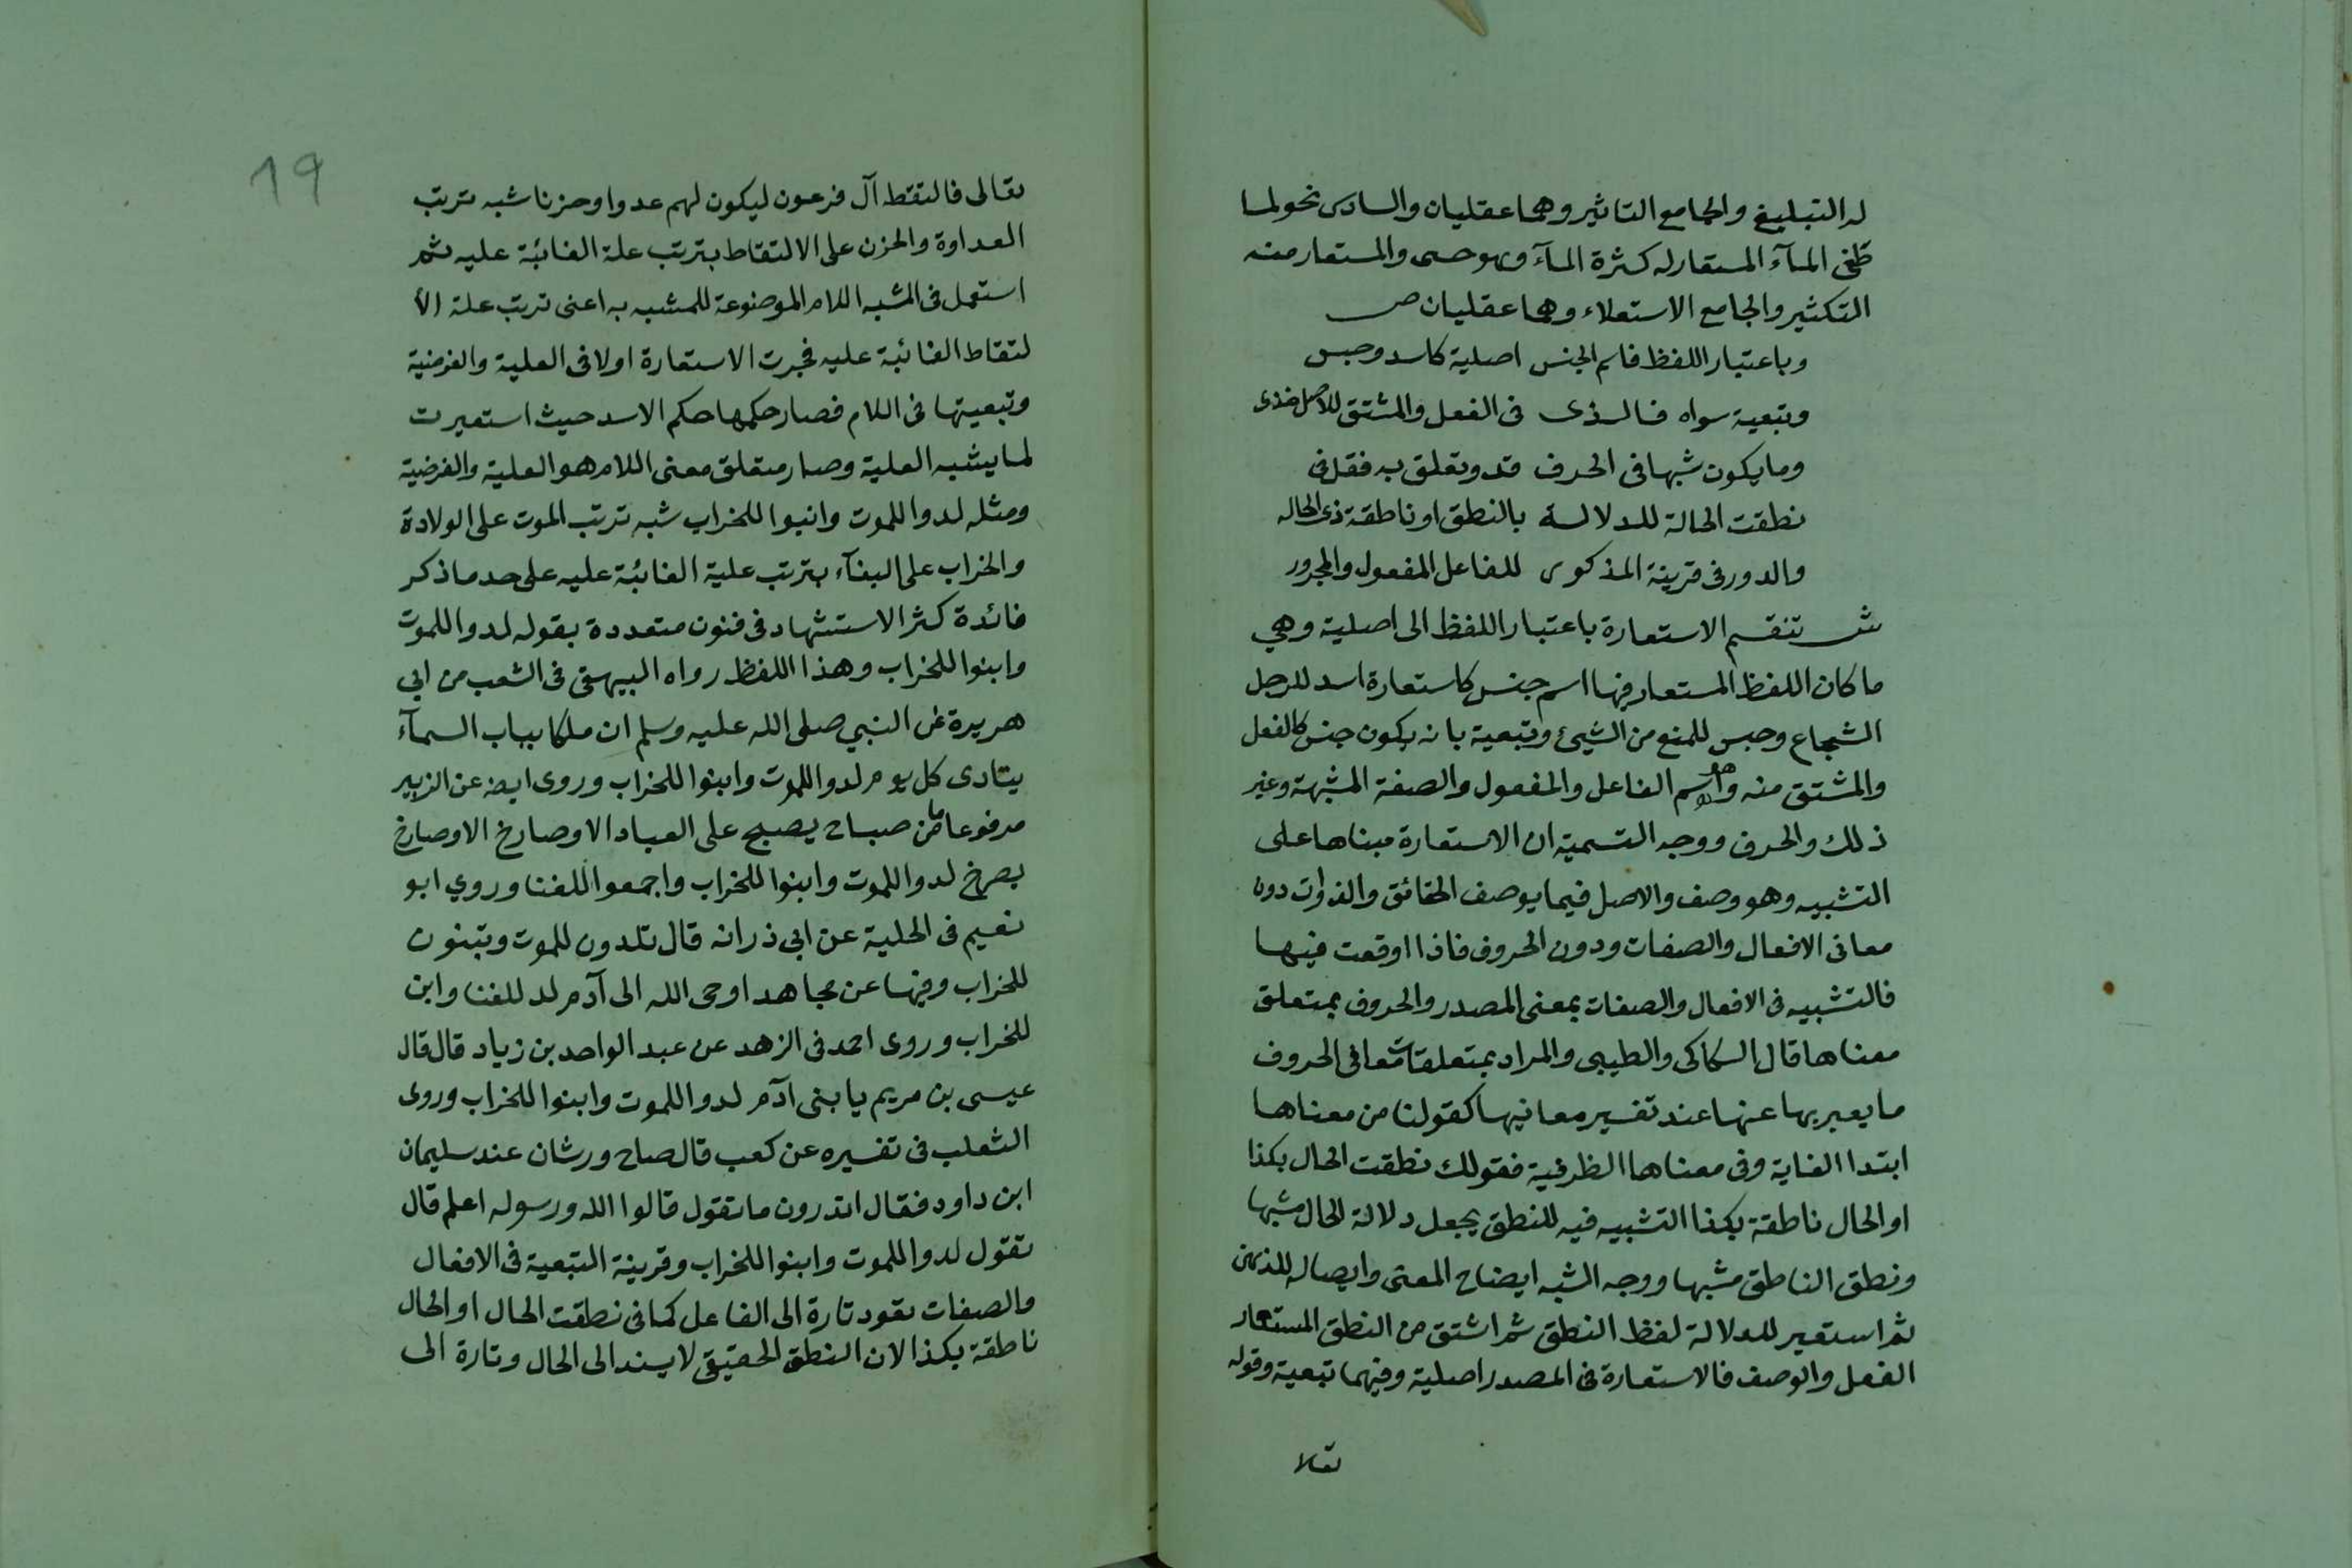 له التبليغ والجامع التاثير وهما عقليان والسادس نحو لما
طغى المآء المستعار له كثرة المآء وهو حسى والمستعار منه
التكثير والجامع الاستعلاء وهما عقليان ص
وباعتبار اللفظ فاسم الجنس اصلية كاسد وحبس
وتبعية سواه فالذى فى الفعل والمشتق للاصل خذى
وما يكون شبها فى الحرف قد وتعلق به فقل فى
نطقت الحالة للدلالة بالنطق او ناطقة ذى الحاله
والدور فى قرينة المذكور للفاعل المفعول والمجرور
ش تنقسم الاستعارة باعتبار اللفظ الى اصلية وهي
ما كان اللفظ المستعار فيها اسم جنس كاستعارة اسد للرجل
الشجاع وحبس للمنع من الشيئ وتبعية بانه يكون جنس كالفعل
والمشتق منه وهو اسم الفاعل والمفعول والصفة المشبهة وغير
ذلك والحرف ووجه التسمية ان الاستعارة مبناها على
التشبيه وهو وصف والاصل فيما يوصف الحقائق والذوات دون
معانى الافعال والصفات ودون الحروف فاذا اوقعت فيها
فالتشبيه فى الافعال والصفات بمعنى المصدر والحروف بمتعلق
معناها قال السكاكى والطيبى والمراد بمتعلقات معانى الحروف
ما يعبر بها عنها عند تفسير معانيها كقولنا من معناها
ابتدا الغاية وفى معناها الظرفية فقولك نطقت الحال بكذا
او الحال ناطقة بكذا التشبيه فيه للنطق يجعل دلالة الحال مشبها
ونطق الناطق مشبها ووجه الشبه ايضاح المعنى وايصاله للذهن
ثم استعير للدلالة لفظ النطق ثم اشتق من النطق المستعار
الفعل والوصف فالاستعارة فى المصدر اصلية وفيهما تبعية وقوله
تعالى
19
تعالى فالتقط آل فرعون ليكون لهم عدوا وحزنا شبه ترتب
العداوة والحزن على الالتقاط بترتب علة الغائبة عليه ثم
استعمل فى المشبه اللام الموضوعة للمشبه به اعنى ترتب علة الا
لتقاط الغائبة عليه فجرت الاستعارة اولا فى العلية والغرضية
وتبعيتها فى اللام فصار حكمها حكم الاسد حيث استعيرت
لما يشبه العلية وصار متعلق معنى اللام هو العلية والغرضية
ومثله لدوا للموت وانبوا للخراب شبه ترتب الموت على الولادة
والخراب على البنآء بترتب علية الغائبة عليه على حد ما ذكر
فائدة كثر الاستشهاد فى فنون متعددة بقوله لدوا للموت
وابنوا للخراب وهذا اللفظ رواه البيهقى فى الشعب من ابي
هريرة عن النبي صلى الله عليه وسلم ان ملكا بباب السمآء
يتادى كل يوم لدوا للموت وابنوا للخراب وروى ايضه عن الزبير
مرفوعا ما من صباح يصبح على العباد الا وصارخ الا وصارخ
يصرخ لدوا للموت وابنوا للخراب واجمعوا للفنا وروي ابو
نعيم فى الحلية عن ابى ذر انه قال تلدون للموت وتبنون
للخراب وفيها عن مجاهد اوحى الله الى آدم لد للفنا وابن
للخراب وروى احمد فى الزهد عن عبد الواحد بن زياد قال قال
عيسى بن مريم يا بنى آدم لدوا للموت وابنوا للخراب وروى
الثعلب فى تفسيره عن كعب قال صاح ورشان عند سليمان
ابن داود فقال اتدرون ما تقول قالوا الله ورسوله اعلم قال
تقول لدوا للموت وابنوا للخراب وقرينة التبعية فى الافعال
والصفات تعود تارة الى الفاعل كما فى نطقت الحال او الحال
ناطقة بكذا لان النطق الحقيقى لا يسند الى الحال وتارة الى